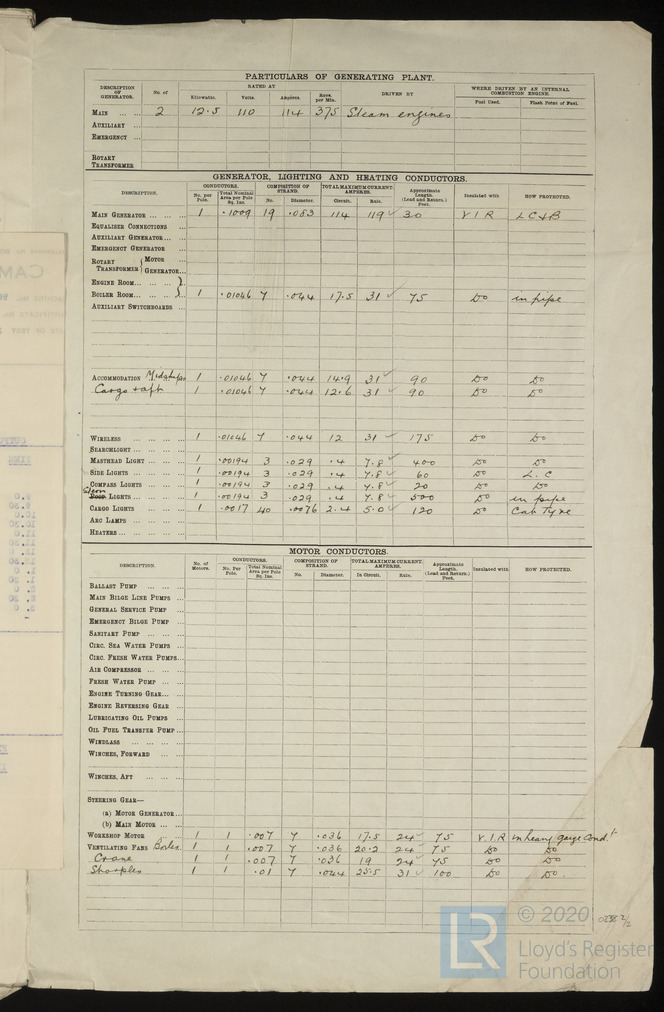 PARTICULARS OF GENERATING PLANT.
DESCRIPTION OF GENERATOR. No. of RATED AT DRIVEN BY WHERE DRIVEN BY AN INTERNAL COMBUSTION ENGINE.
Kilowatts. Volts. Ampères. Revs. per Min. Fuel Used. Flash Point of Fuel.
MAIN ... ... 2 12.5 110 114 375 Steam engines
AUXILIARY ...
EMERGENCY ...
ROTARY TRANSFORMER
GENERATOR, LIGHTING AND HEATING CONDUCTORS.
DESCRIPTION. CONDUCTORS. COMPOSITION OF STRAND. TOTAL MAXIMUM CURRENT AMPERES. Approximate Length. (Lead and Return.) Feet. Insulated with HOW PROTECTED.
No. per Pole. Total Nominal Area per Pole Sq. Ins. No. Diameter. Circuit. Rule.
MAIN GENERATOR ... ... ... 1 .1009 19 .083 114 119 ✓ 30 V I R L C & B
EQUALISER CONNECTIONS ...
AUXILIARY GENERATOR ... ...
EMERGENCY GENERATOR ...
ROTARY TRANSFORMER { MOTOR ...
GENERATOR...
ENGINE ROOM... ... ... }
BOILER ROOM... ... ... } 1 .01046 7 .044 17.5 31 ✓ 75 Do in pipe
AUXILIARY SWITCHBOARDS ...
ACCOMMODATION Midships 1 .01046 7 .044 14.9 31 ✓ 90 Do Do
Cargo & aft 1 .01046 7 .044 12.6 31 ✓ 90 Do Do
WIRELESS ... ... ... ... 1 .01046 7 .044 12 31 ✓ 175 Do Do
SEARCHLIGHT ... ... ... ...
MASTHEAD LIGHT ... ... ... 1 .00194 3 .029 .4 7.8 ✓ 400 Do Do
SIDE LIGHTS ... ... ... ... 1 .00194 3 .029 .4 7.8 ✓ 60 Do L.C
COMPASS LIGHTS ... ... ... 1 .00194 3 .029 .4 7.8 ✓ 20 Do Do
Stern LIGHTS ... ... ... 1 .00194 3 .029 .4 7.8 ✓ 500 Do in pipe
CARGO LIGHTS ... ... ... 1 .0017 40 .0076 2.4 5.0 ✓ 120 Do Cab Tyre
ARC LAMPS ... ... ... ...
HEATERS ... ... ... ...
MOTOR CONDUCTORS.
DESCRIPTION. No. of Motors. CONDUCTORS. COMPOSITION OF STRAND. TOTAL MAXIMUM CURRENT. AMPERES. Approximate Length. (Lead and Return.) Feet. Insulated with HOW PROTECTED.
No. Per Pole. Total Nominal Area per Pole Sq. Ins. No. Diameter. In Circuit. Rule.
BALLAST PUMP ... ... ...
MAIN BILGE LINE PUMPS ...
GENERAL SERVICE PUMP ...
EMERGENCY BILGE PUMP ...
SANITARY PUMP ... ... ...
CIRC. SEA WATER PUMPS ...
CIRC. FRESH WATER PUMPS...
AIR COMPRESSOR ... ... ...
FRESH WATER PUMP ... ...
ENGINE TURNING GEAR... ...
ENGINE REVERSING GEAR ...
LUBRICATING OIL PUMPS ...
OIL FUEL TRANSFER PUMP ...
WINDLASS ... ... ... ...
WINCHES, FORWARD ... ...
WINCHES, AFT ... ... ...
STEERING GEAR—
(a) MOTOR GENERATOR...
(b) MAIN MOTOR ... ...
WORKSHOP MOTOR ... ... 1 1 .007 7 .036 17.5 24 ✓ 75 V.I.R in heavy gauge Condt
VENTILATING FANS Boiler 1 1 .007 7 .036 20.2 24 ✓ 75 Do Do
Crane 1 1 .007 7 .036 19 24 ✓ 45 Do Do
Sharples 1 1 .01 7 .044 25.5 31 ✓ 100 Do Do.
LR © 2020
Lloyd's Register
Foundation